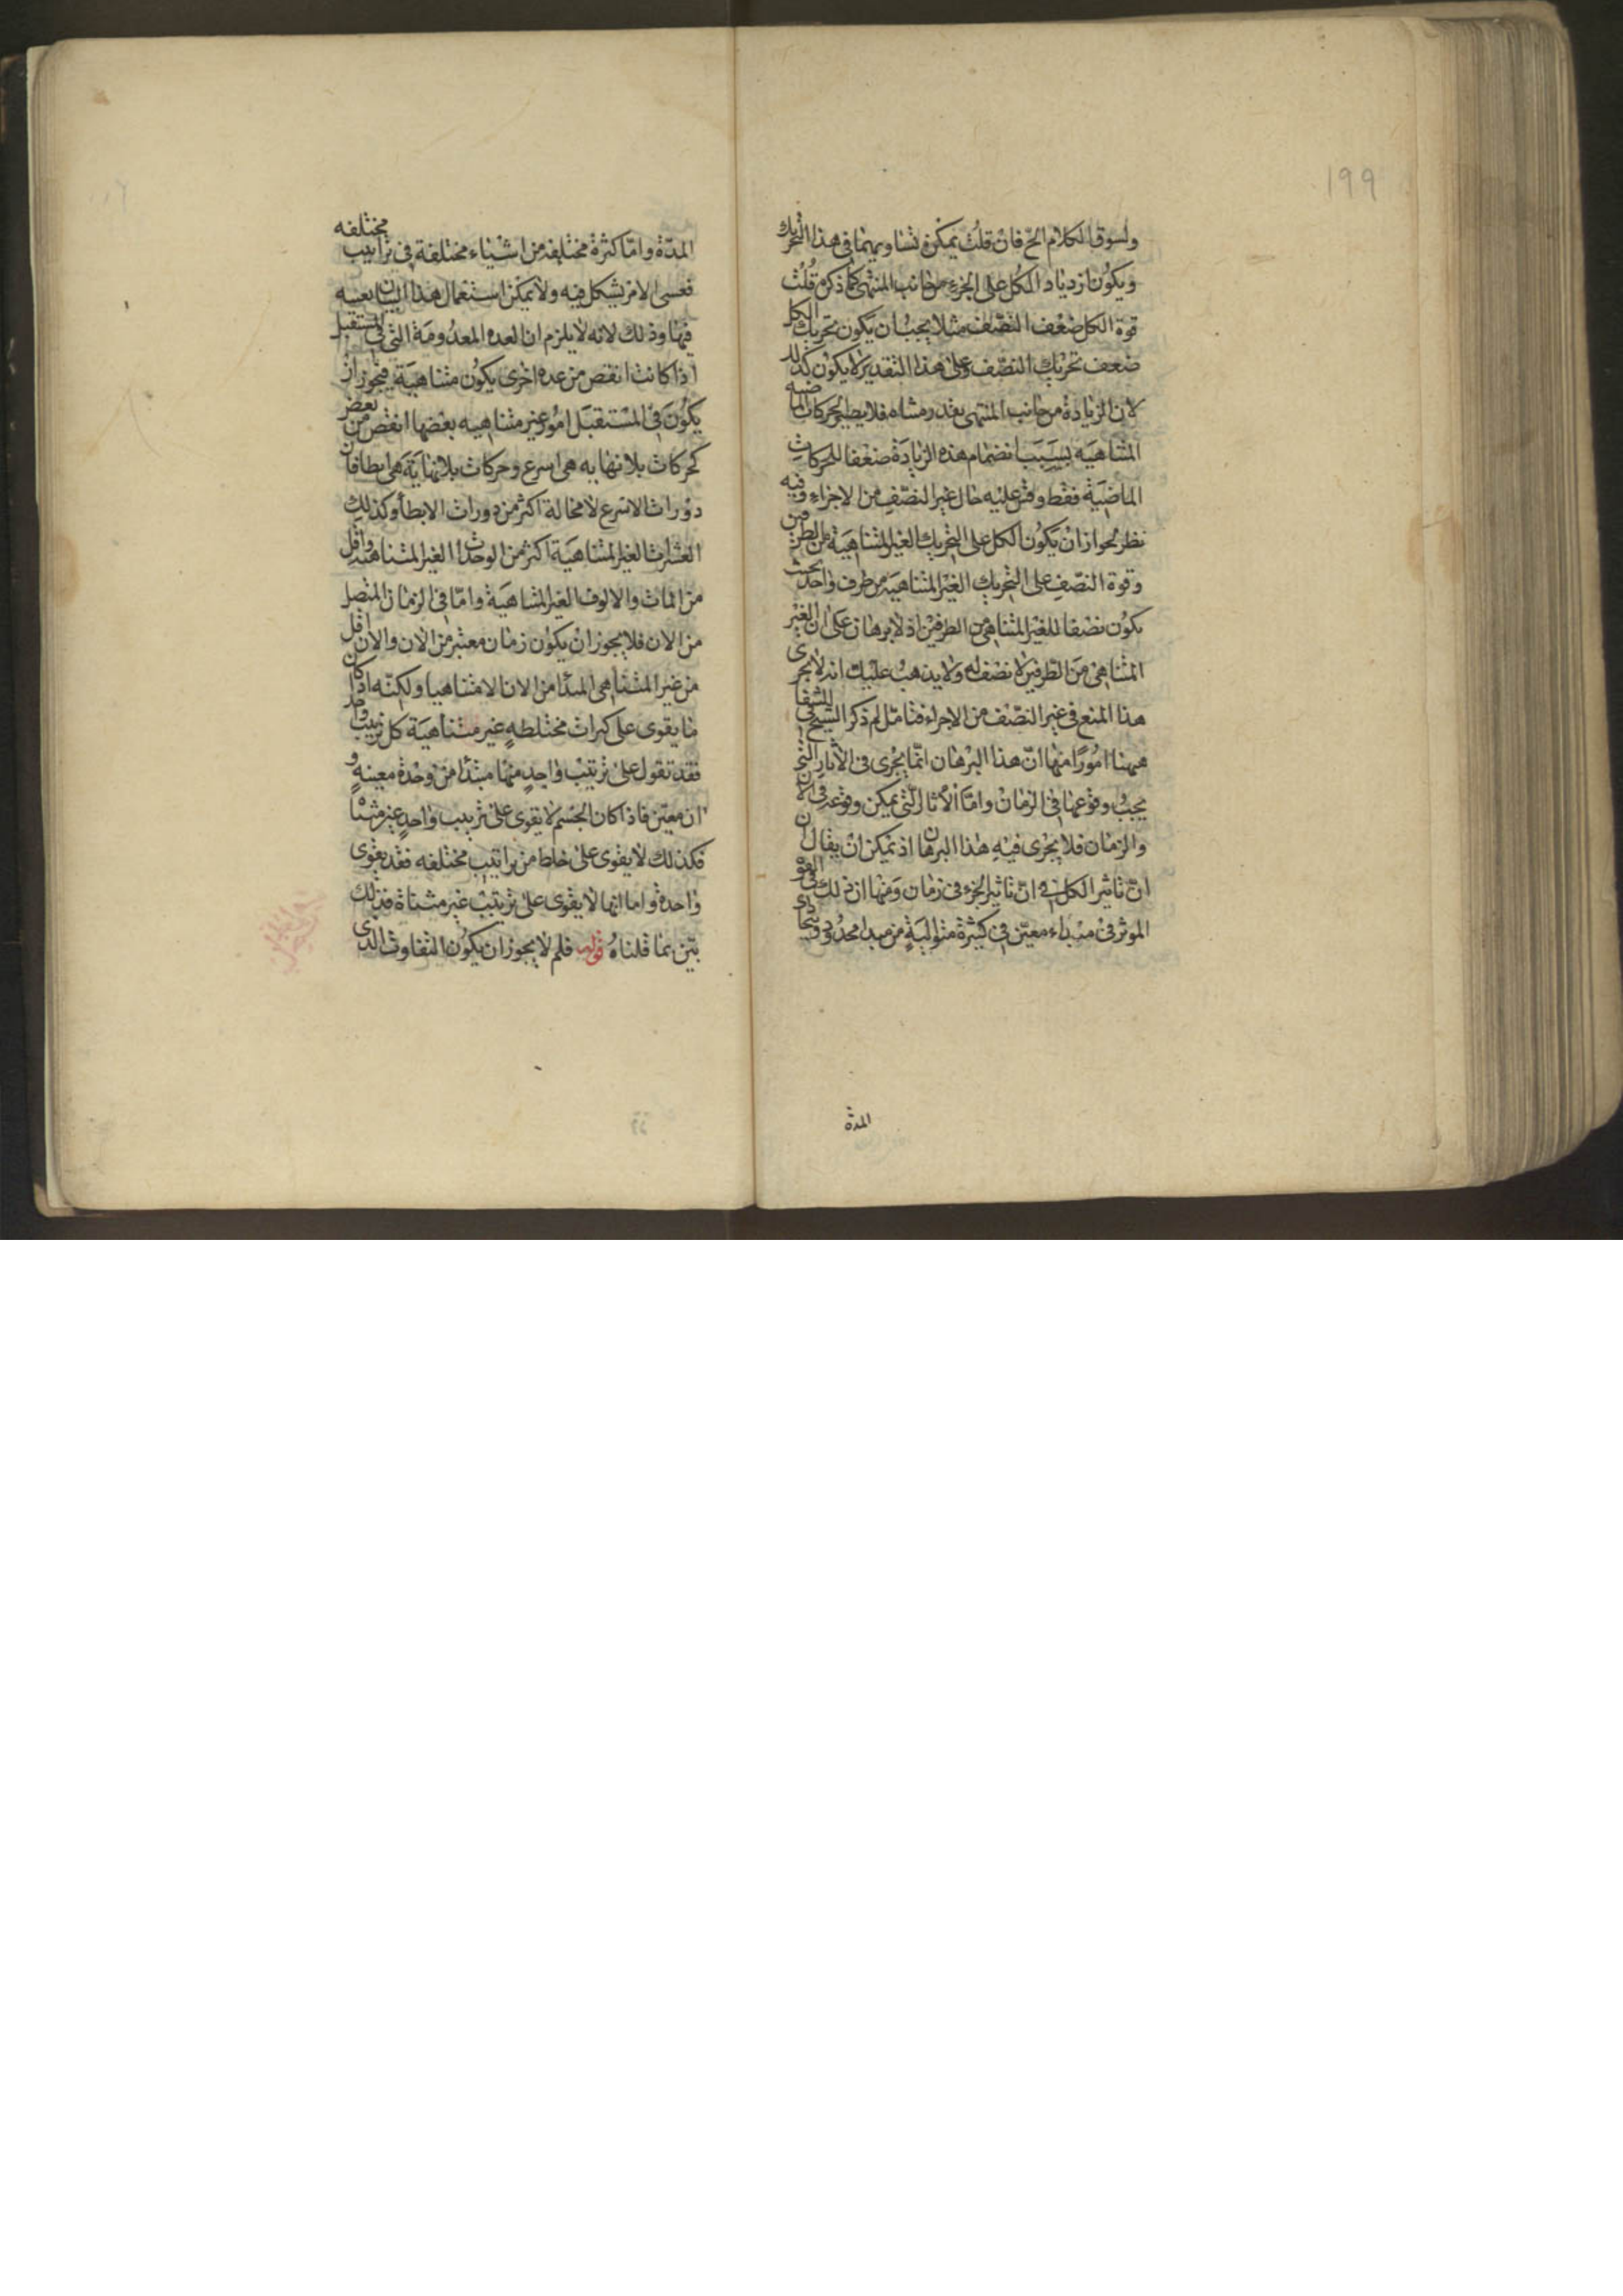 199
ولسوق الكلام الخ فان قلت يمكن تساويهما فى هذا التحريك
ويكون ازدياد الكل على الجزء من جانب المنتهى كما ذكره قلت
قوة الكل ضعف النصف مثلا يجب ان يكون تحريك الكل
ضعف تحريك النصف وعلى هذا التقدير لا يكون كذلك
لان الزيادة من جانب المنتهى بقدر متناه فلا يصير الحركات الماضيه
المتناهية بسبب انضمام هذه الزيادة ضعفا للحركات
الماضية فقط وقس عليه حال غير النصف من الاجزاء وفيه
نظر لجواز ان يكون الكل على التحريك الغير المتناهية من الطرفين
وقوة النصف على التحريك الغير المتناهية من طرف واحد بحيث
يكون نصفا للغير المتناهى من الطرفين اذ لا برهان على ان الغير
المتناهى من الطرفين لا نصف له ولا يذهب عليك انه لا يجرى
هذا المنع فى غير النصف من الاجزاء فتامل لم ذكر الشيخ فى الشفا
ههنا امورا منها ان هذا البرهان انما يجرى فى الاثار التى
يجب وقوعها فى الزمان واما الاثار التى يمكن وقوعه فى الان
والزمان فلا يجرى فيه هذا البرهان اذ يمكن ان يقال
ان تاثير الكل فى ان تاثير الجزء فى زمان ومنها ان ذلك فى القوة
الموثر فى مبداء معين فى كثرة متوالية من مبدا محدود
المدة
المدة واما كثرة مختلفه من اشياء مختلفة فى تراتيب مختلفه
فعسى الامر يشكل فيه ولا يمكن استعمال هذا البيان بعينه
فيها وذلك لانه لا يلزم ان العده المعدومة التى فى المستقبل
اذا كانت انقص من عده اخرى يكون متناهية فيجوز ان
يكون فى المستقبل امور غير متناهيه بعضها انقص من بعض
كحركات بلا نهايه هى اسرع وحركات بلا نهاية هى ابطا فان
دورات الاسرع لا محالة اكثر من دورات الابطأ وكذلك
العشرات الغير المتناهية اكثر من الوحدات الغير المتناهية واقل
من المات والالوف الغير المتناهية واما فى الزمان المتصل
من الان فلا يجوز ان يكون زمان معتبر من الان والان اقل
من غير المتناهى المبدأ من الان الا متناهيا ولكنه اذا كان
ما يقوى على كثرات مختلطه غير متناهية كل ترتيب واحد
فقد تقول على ترتيب واحد منها مبتدا من وحدة معينه و
ان معين فاذا كان الجسم لا يقوى على ترتيب واحد غير متناه
فكذلك لا يقوى على خلط من تراتيب مختلفه فقد يقوى
واحدة واما انها لا يقوى على ترتيب غير متناة فذلك
بيّن بما قلناهُ قوله فلم لا يجوز ان يكون التفاوت الذى